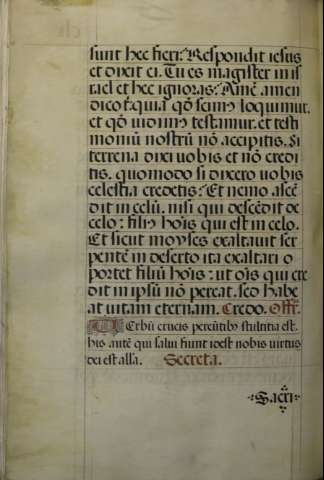 sunt hec fieri? Respondit iesus
et dixit ei. Tu es magister in is
rael et hec ignoras? Amē amen
dico tꝭ: quia qđ scimꝰ loquimur.
et qđ vidimꝰ testamur. et testi
moniū nostrū nō accipitis. Si
terrena dixi uobis et nō credi
tis. quomodo si dixero uobis
celestia credetis? Et nemo ascē
dit in celū. nisi qui descēdit de
celo: filiꝰ hoīs qui est in celo.
Et sicut moyses exaltauit ser
pentē in deserto ita exaltari o
portet filiū hoīs: ut oīs qui cre
dit in ipsū nō pereat. sed habe
at uitam eternam. Credo. Offr̄.
Erbū crucis pereūtibꝰ stultitia est.
his autē qui salui fiunt idest nobis uirtus
dei est alla. Secreta.
Sacri